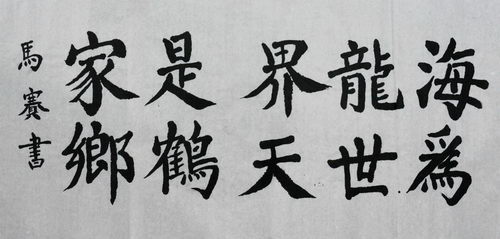 海爲
龍世
界天
是鶴
家鄉
馬賽書